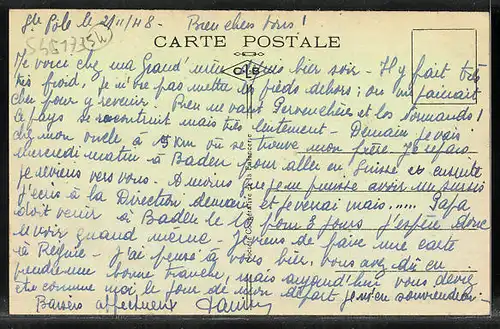 St Pôle le 21/11/48 - Bien chers tous !
S461735W
CARTE POSTALE
CLB
Me voici chez ma Grand' mère depuis hier soir - Il y fait très
très froid, je n'ose pas mettre les pieds dehors ; on me paierait
cher pour y revenir. Rien ne vaut et les Normands !
Le pays se reconstruit mais très lentement - Demain je vais
chez mon oncle à 15 km où se trouve mon frère. Je repars
mercredi matin à Baden pour aller en Suisse et ensuite
je reviens vers vous. A moins que je ne puisse avoir un sursis
J'écris à la Direction demain et je verrai mais..... Papa
doit venir à Baden le pour 3 jours J'espère donc
le voir quand même - Je viens de faire une carte
à - J'ai pensé à vous hier. Vous avez dû en
une bonne tranche, mais aujourd'hui vous devez
être comme moi le jour de mon départ je m'en souviendrai -
Baisers affectueux